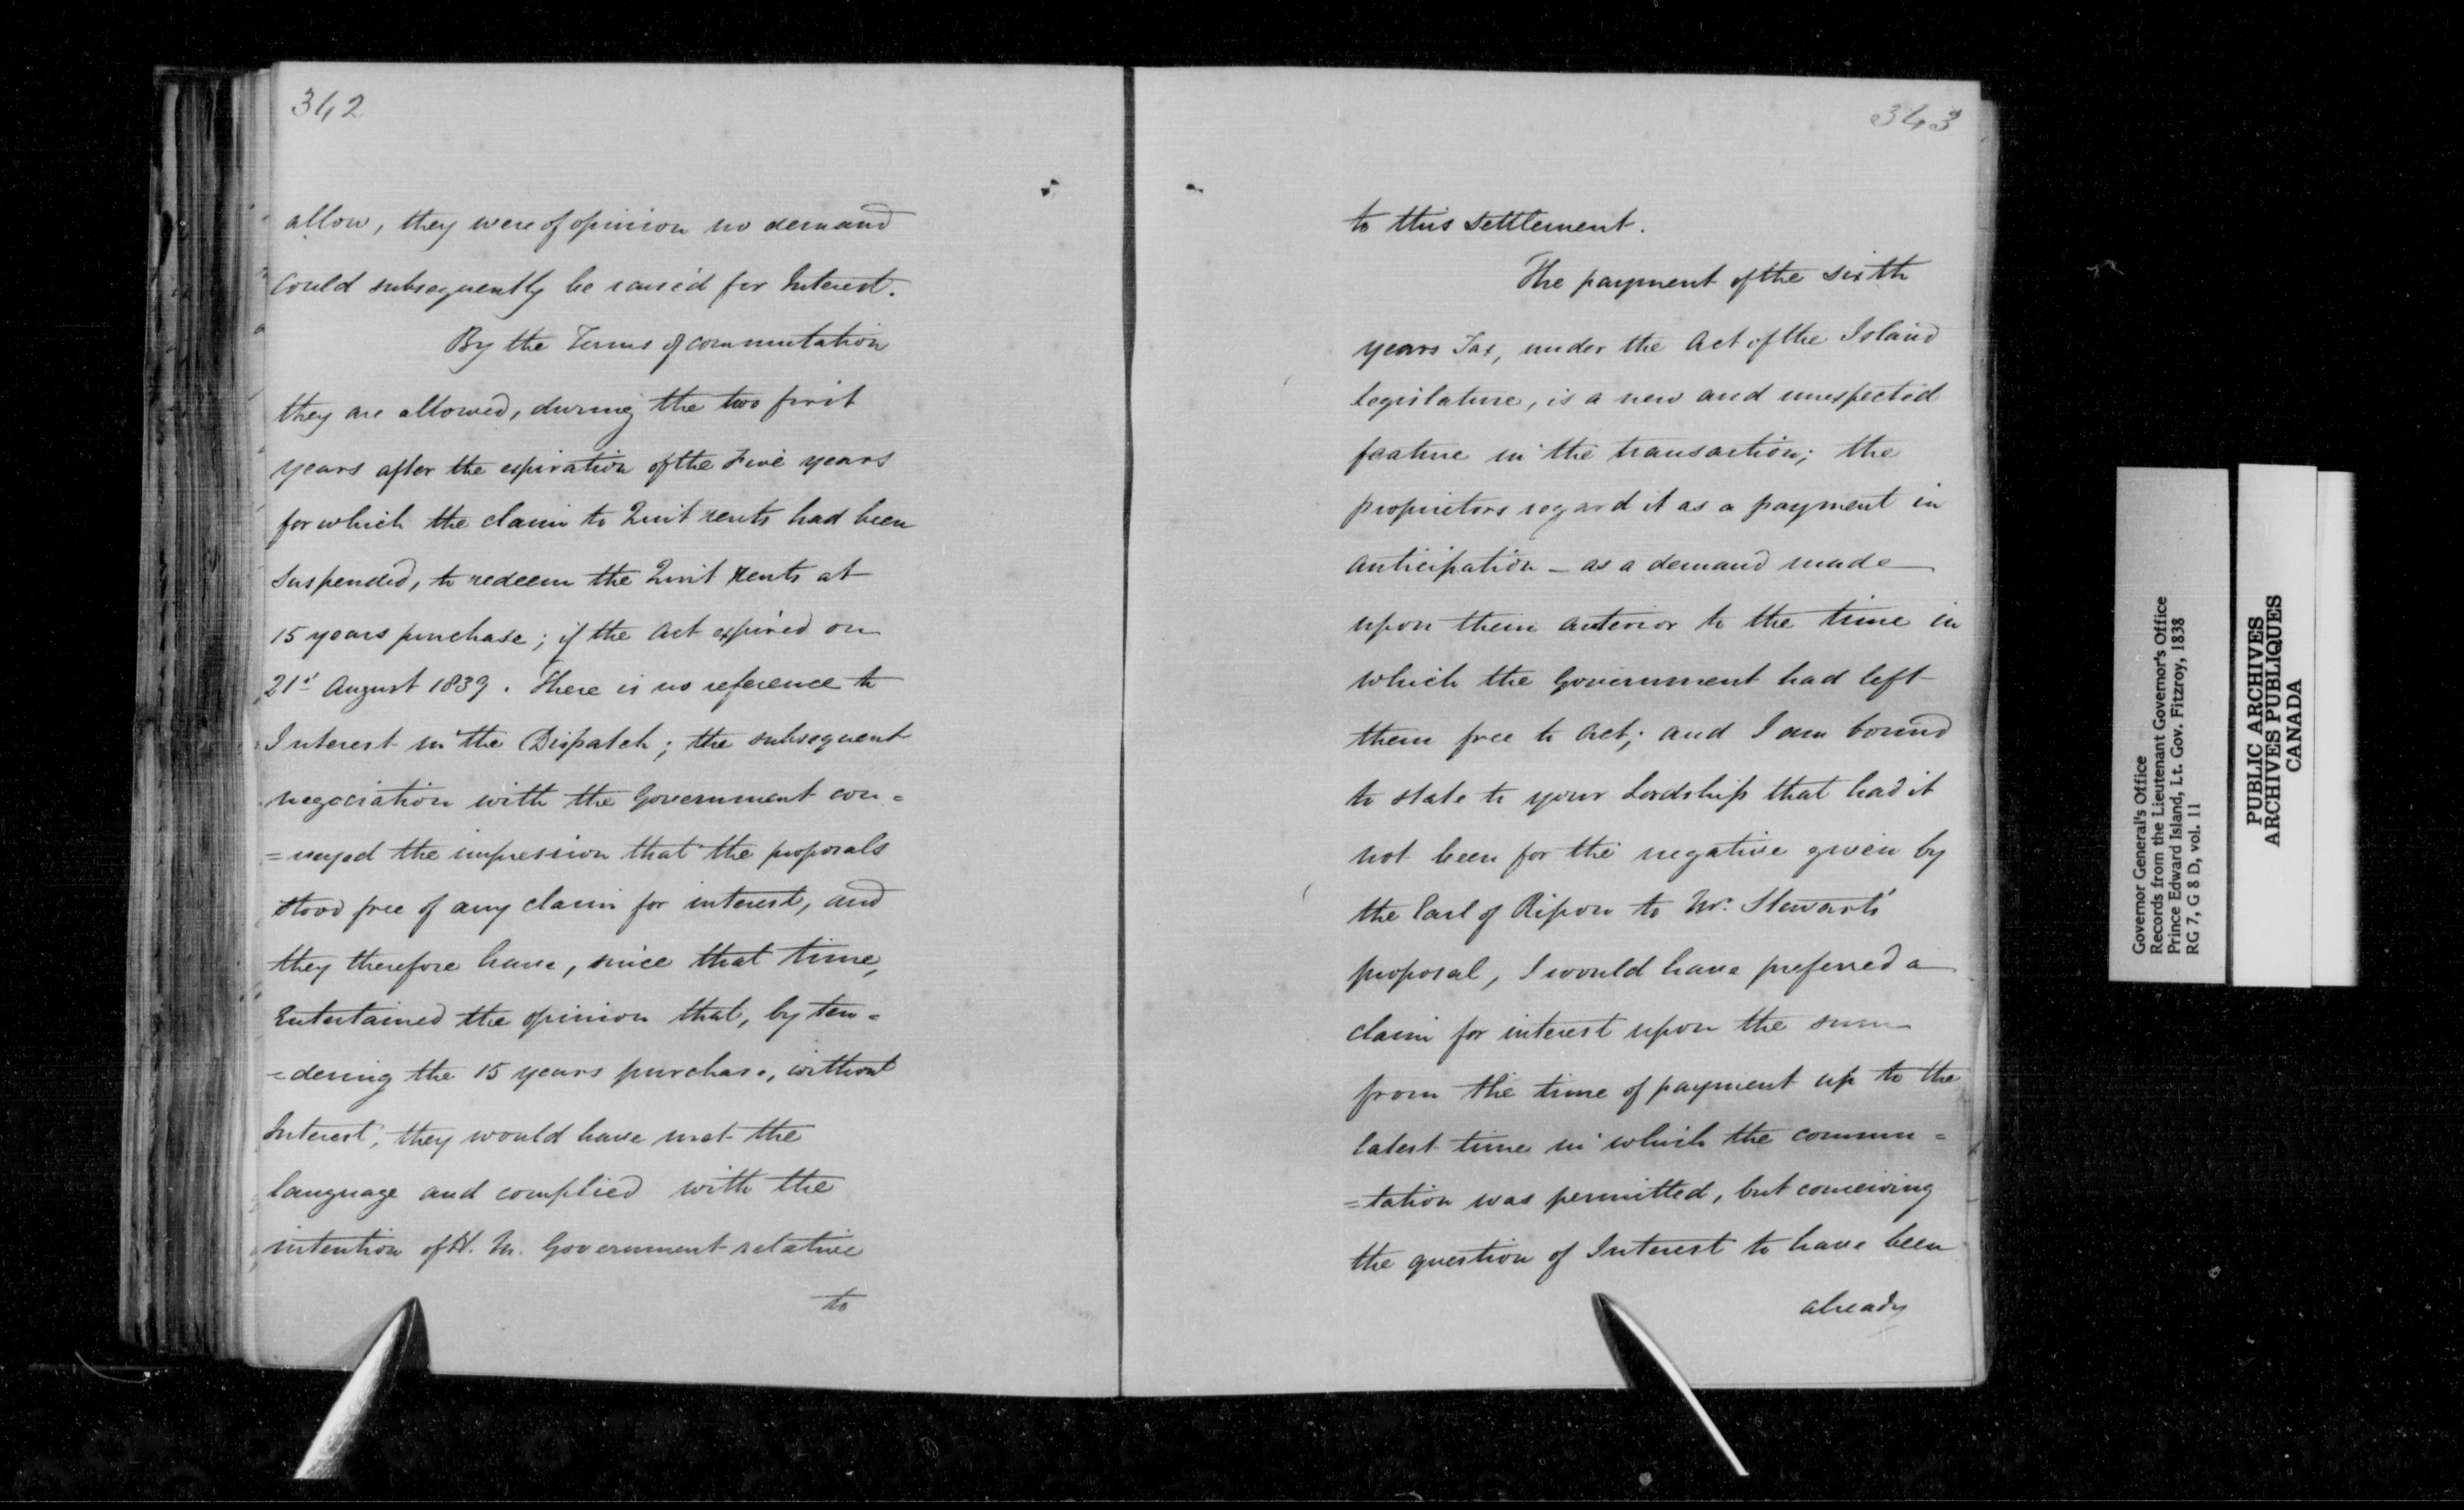 342
allow, they were of opinion no demand
could subsequently be raised for Interest.
By the Terms of commutation
they are allowed, during the two first
years after the expiration of the Five years
for which the claim to Quit rents had been
suspended, to redeem the Quit Rents at
15 years purchase; if the Act expired on
21st August 1839. There is no reference to
Interest in the Dispatch; the subsequent
negociation with the Government con=
=veyed the impression that the proposals
stood free of any claim for interest, and
they therefore have, since that time,
Entertained the opinion that, by ten=
=dering the 15 years purchase, without
Interest, they would have met the
language and complied with the
intention of H. M. Government relative
to
343
to this settlement.
The payment of the sixth
years Tax, under the Act of the Island
Legislature, is a new and unexpected
feature in the transaction; the
proprietors regard it as a payment in
anticipation – as a demand made
upon them anterior to the time in
which the Government had left
them free to Act; and I am bound
to state to your Lordship that had it
not been for the negative given by
the Earl of Ripon to Mr. Stewart's
proposal, I would have preferred a
claim for interest upon the sum
from the time of payment up to the
latest time in which the commu=
=tation was permitted, but conceiving
the question of Interest to have been
already
Governor General's Office
Records from the Lieutenant Governor's Office
Prince Edward Island, Lt. Gov. Fitzroy, 1838
RG 7, G 8 D, vol. 11
PUBLIC ARCHIVES
ARCHIVES PUBLIQUES
CANADA